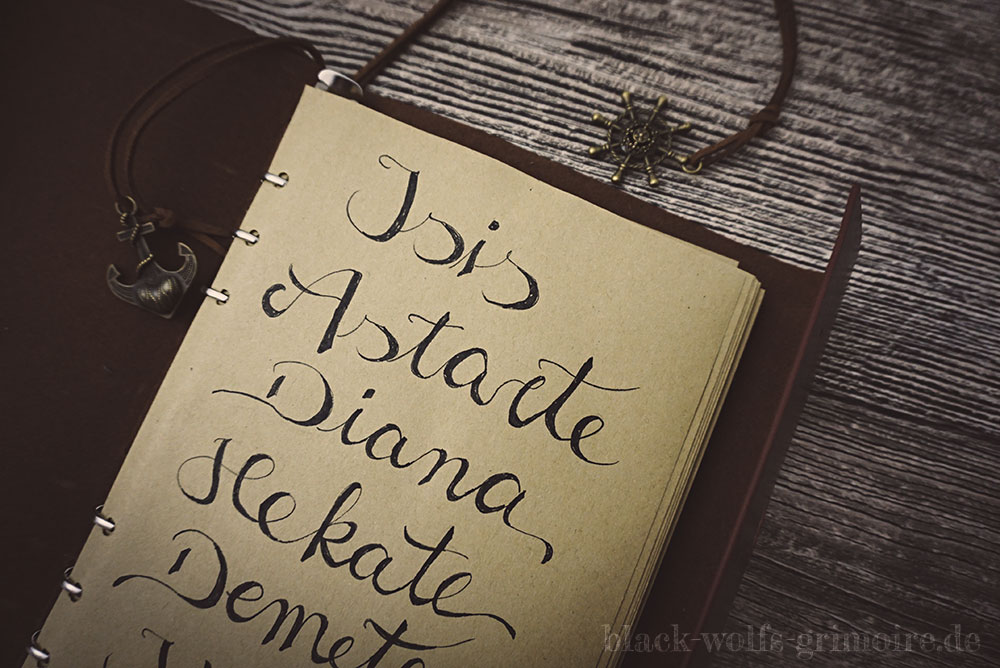 Isis
Astarte
Diana
Hekate
Demet
black-wolfs-grimoire.de